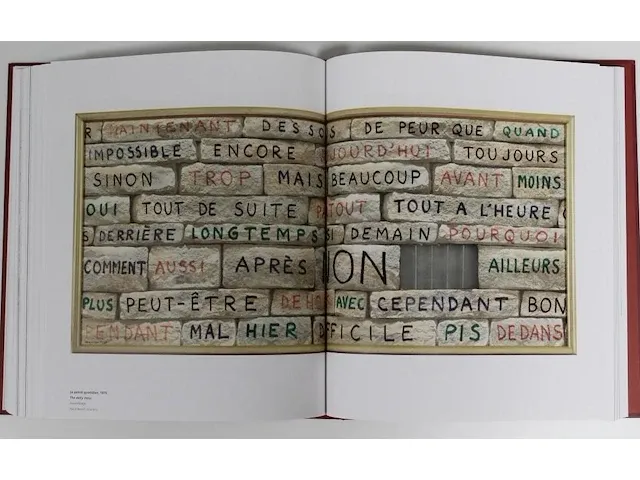 R MAINTENANT DESSOUS DE PEUR QUE QUAND
IMPOSSIBLE ENCORE AUJOURD'HUI TOUJOURS
SINON TROP MAIS BEAUCOUP AVANT MOINS
OUI TOUT DE SUITE PARTOUT TOUT A L'HEURE
DERRIÈRE LONGTEMPS SI DEMAIN POURQUOI
COMMENT AUSSI APRÈS NON AILLEURS
PLUS PEUT-ÊTRE DEHORS AVEC CEPENDANT BON
PENDANT MAL HIER DIFFICILE PIS DEDANS